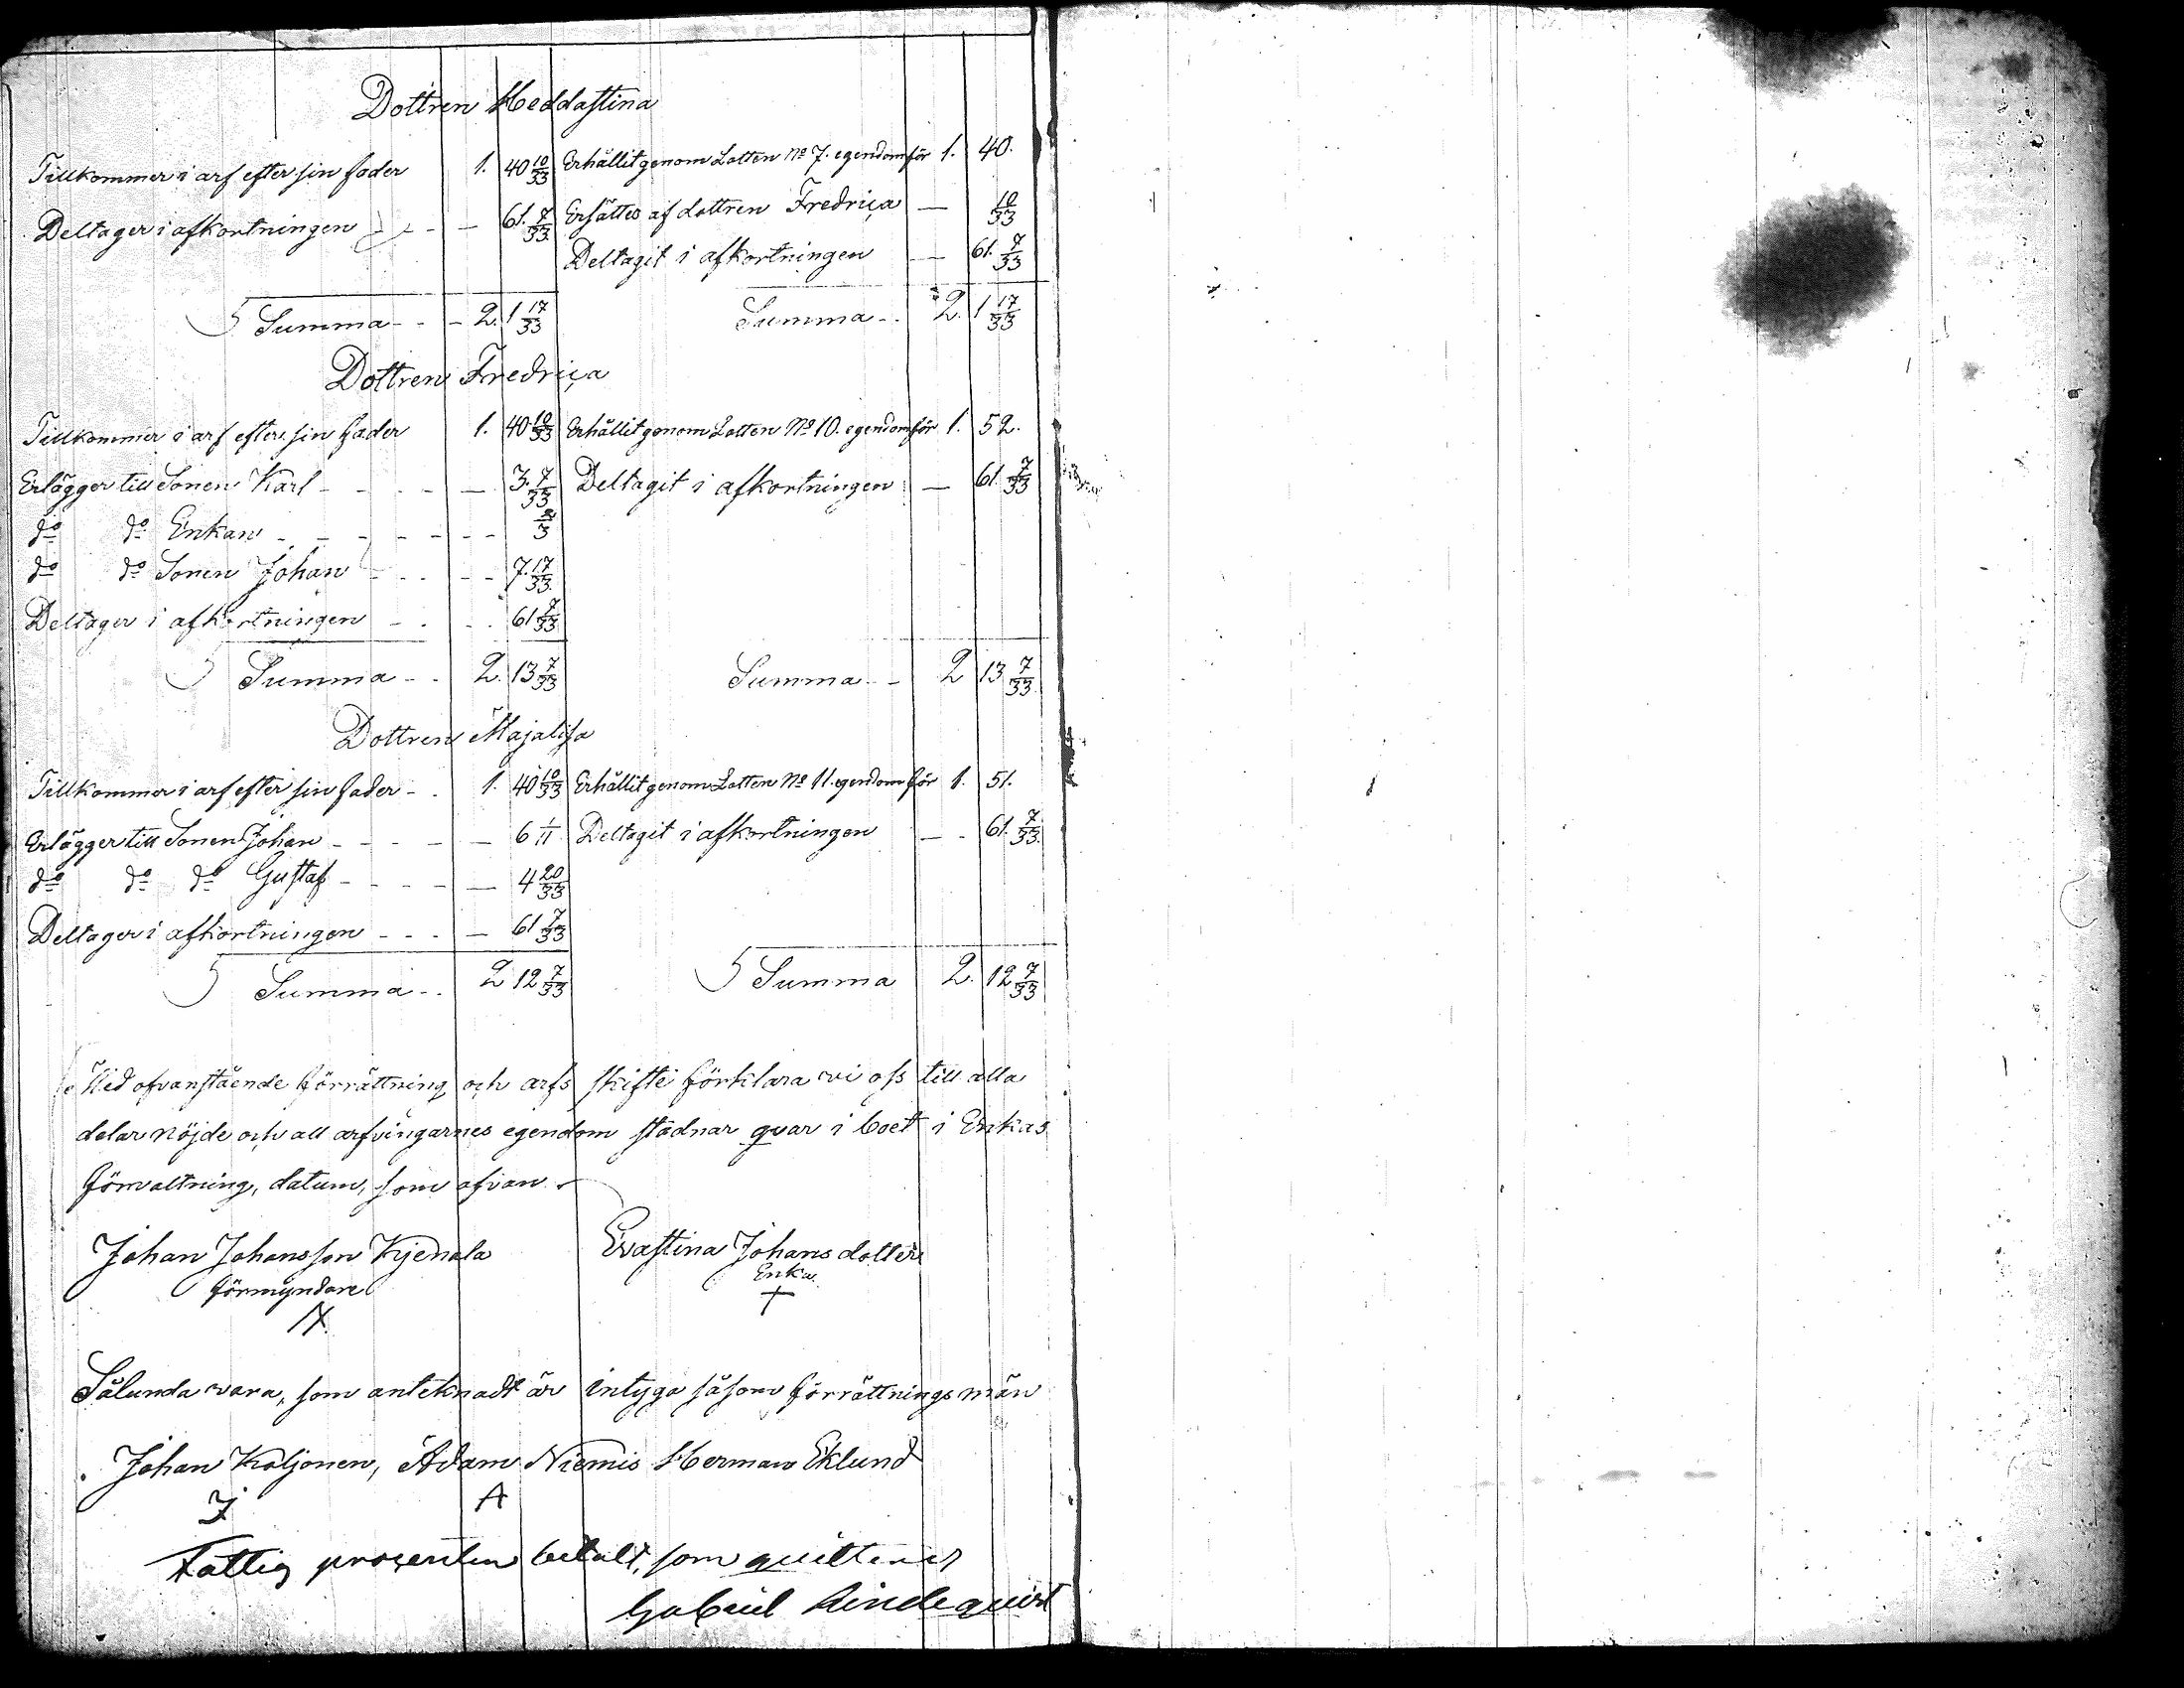 Dottren Heddastina
Tillkommer i arf efter sin fader 1. 40 10/33 Erhållit genom Lotten No 7. egendom för 1. 40.
Deltager i afkortningen - - — 61. 7/33 Ersättes af dottren Fredrica — 10/33
Deltagit i afkortningen — 61. 7/33
Summa - - - 2. 1 17/33 Summa - . 2. 1 17/33
Dottren Fredrica
Tillkommer i arf efter sin fader 1. 40 10/33 Erhållit genom Lotten No 10. egendom för 1. 52.
Erlägger till Sonen Karl - - - - — 3. 7/33 Deltagit i afkortningen — 61. 7/33
do do Enkan - - - - - - - 2/3
do do Sonen Johan - - - - - 7. 17/33
Deltager i afkortningen - - - - 61 7/33
Summa - - 2. 13 7/33 Summa - - 2 13 7/33
Dottren Majalisa
Tillkommer i arf efter sin fader - . 1. 40 10/33 Erhållit genom Lotten No 11. egendom för 1. 51.
Erlägger till Sonen Johan - - - - — 6 1/11 Deltagit i afkortningen — - 61. 7/33
do do do Gustaf - - - - — 4 20/33
Deltager i afkortningen - - - — 61 7/33
Summa - . 2 12 7/33 Summa 2. 12 7/33
Med ofvanstående förrättning och arfs skifte förklara vi oss till alla
delar nöjde och all arfvingarnes egendom stadnar qvar i boet i Enkas
förvaltning, datum, som ofvan.
Johan Johansson Kjenala Evastina Johansdotter
förmyndare Enka
X +
Sålunda vara, som anteknadt är intyga såsom förrättningsmän
Johan Koljonen, Adam Niemis Herman Eklund
J A
Fattig procenten betalt, som quitteras
Gabriel Lindequist